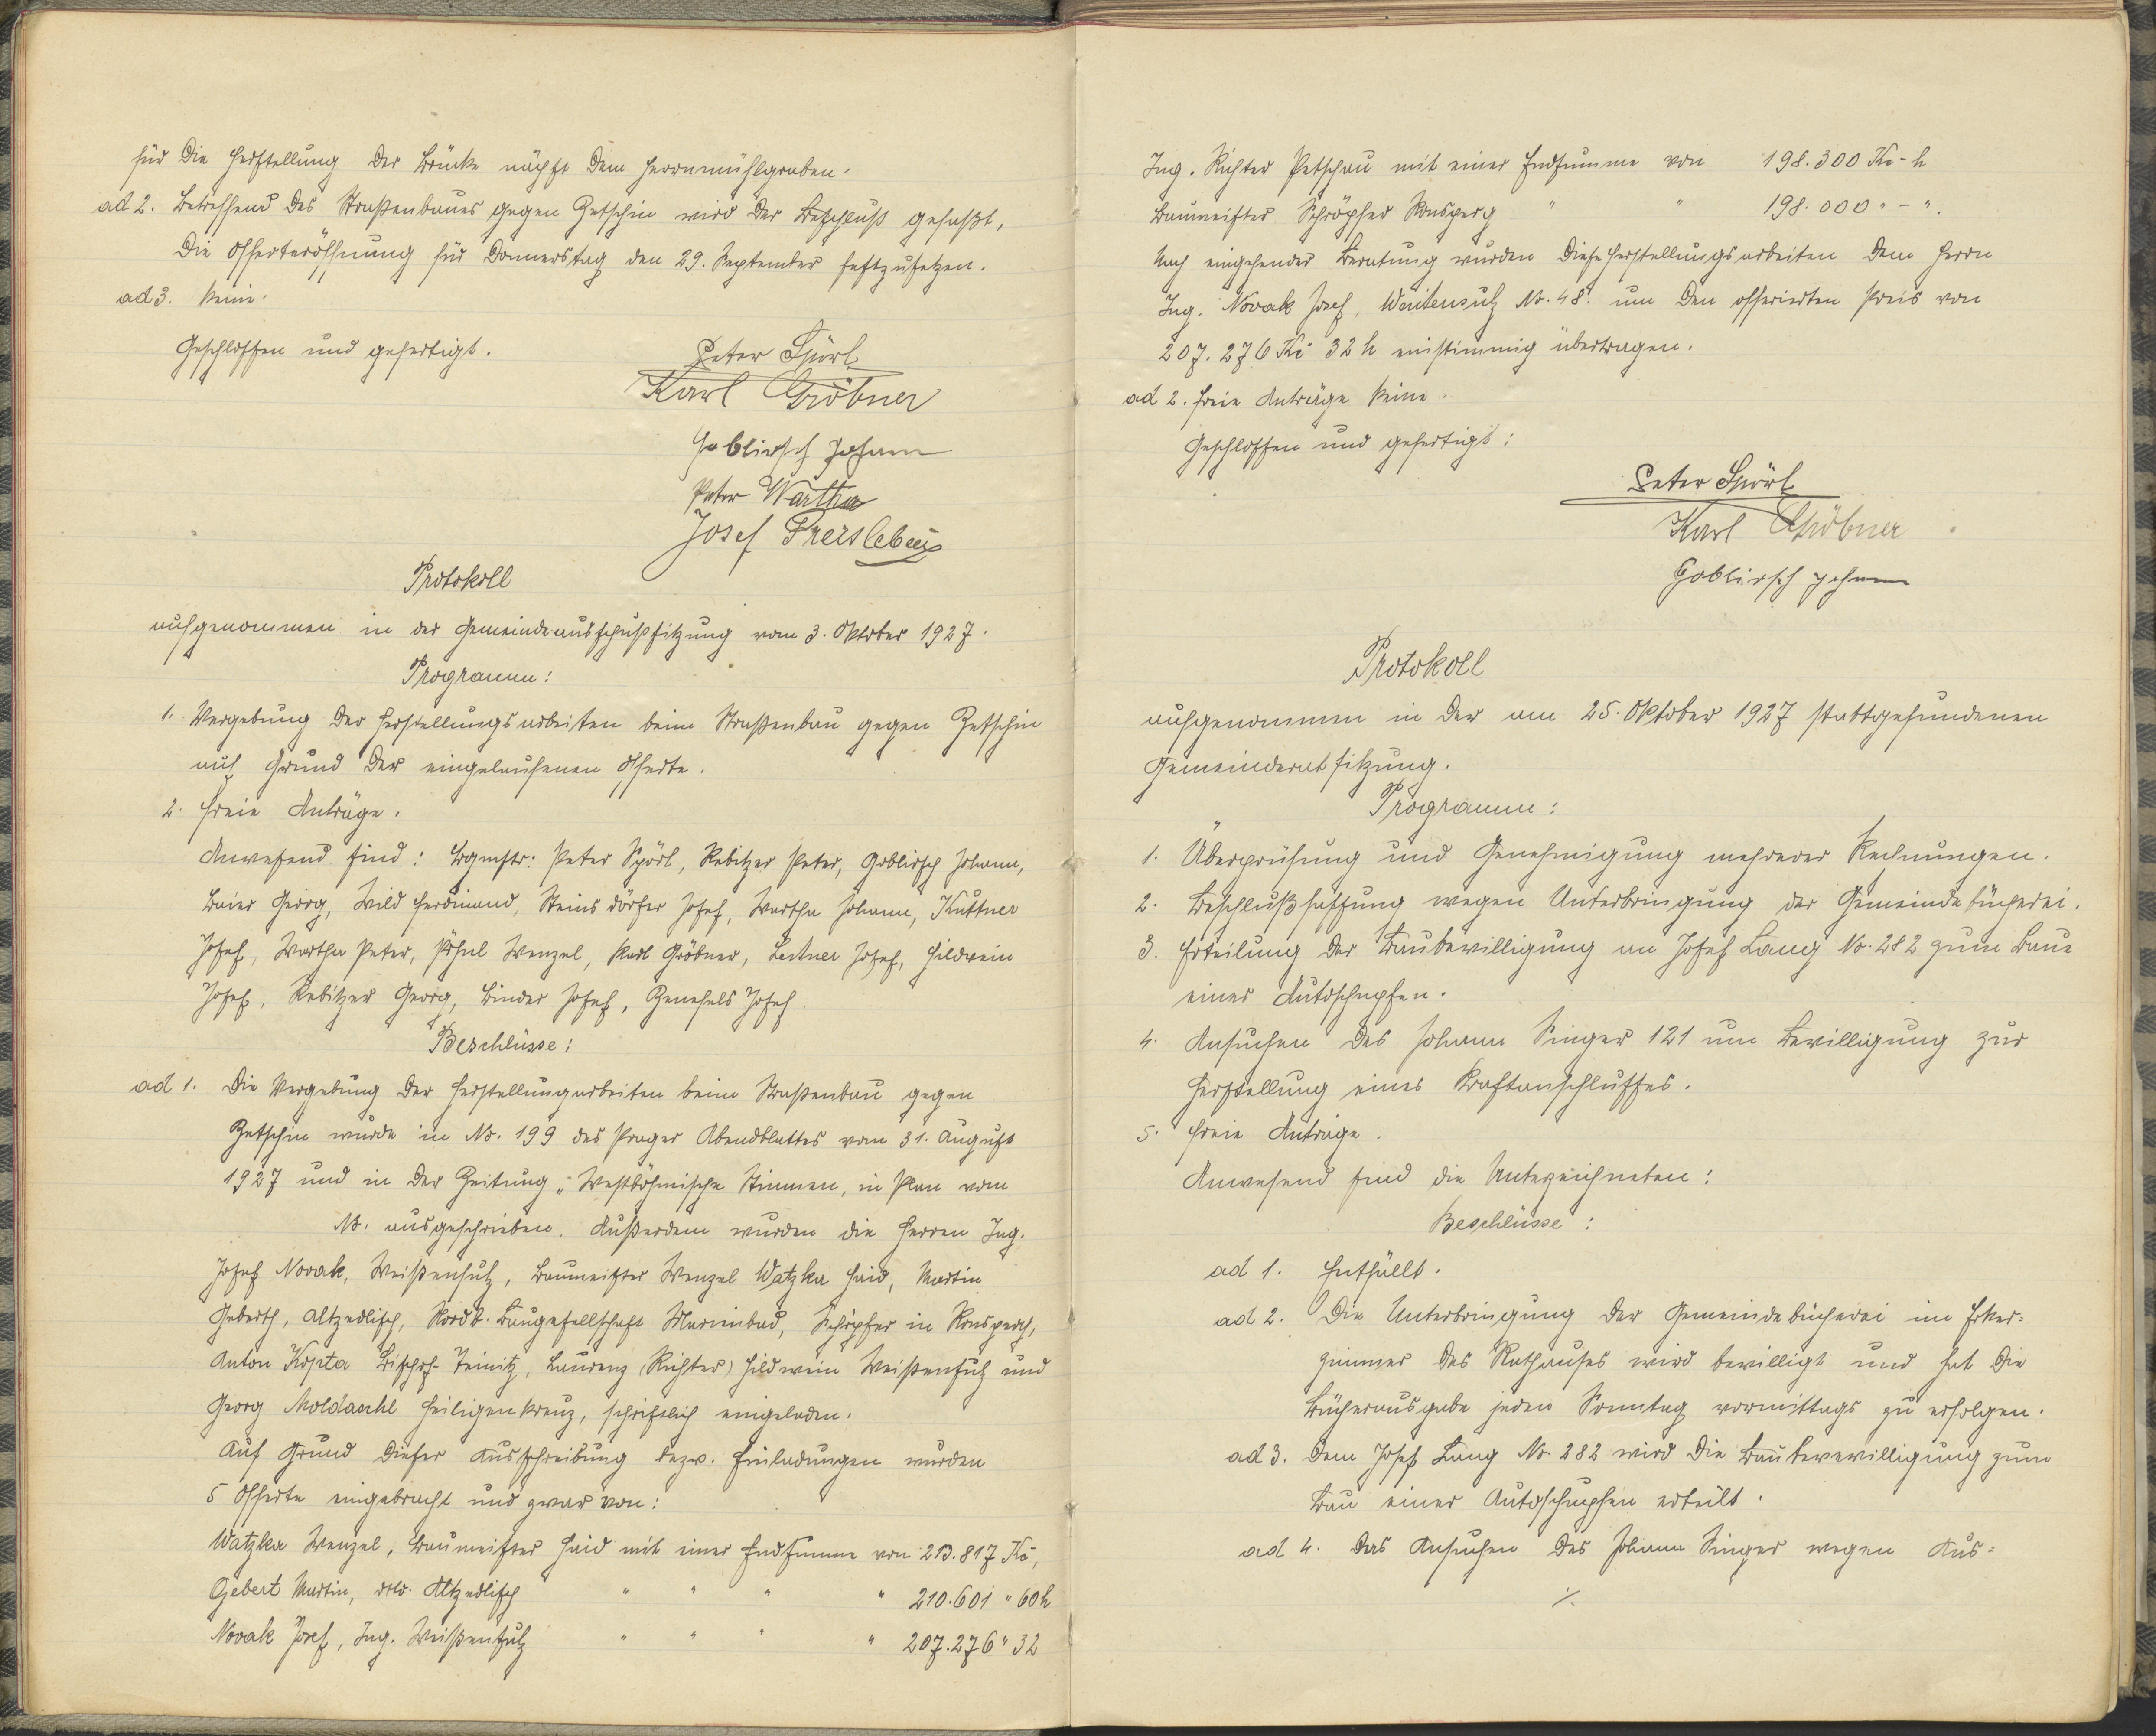 für die Herstellung der Brücke nächst dem Herrnmühlgraben.
ad 2. Betreffend des Straßenbaues gegen Zetschin wird der Beschluß gefaßt,
die Offerteröffnung für Donnerstag den 29. September festzusetzen.
ad 3. Keine.
Geschlossen und gefertigt.
Peter Spörl
Karl Gröbner
Goblirsch Johann
Peter Wartha
Josef Freisleben
Protokoll
aufgenommen in der Gemeindeausschußsitzung vom 3. Oktober 1927.
Programm:
1. Vergebung der Herstellungsarbeiten beim Straßenbau gegen Zetschin
auf Grund der eingelaufenen Offerte.
2. freie Anträge.
Anwesend sind: Bgmstr: Peter Spörl, Rebitzer Peter, Goblirsch Johann,
Baier Georg, Wild Ferdinand, Steinsdörfer Josef, Wartha Johann, Kuttner
Josef, Wartha Peter, Pöhnl Wenzel, Karl Gröbner, Leitner Josef, Hildwein
Josef, Rebitzer Georg, Binder Josef, Josef.
Beschlüsse:
ad 1. Die Vergebung der Herstellungarbeiten beim Straßenbau gegen
Zetschin wurde in No. 199 des Prager Abendblattes vom 31. August
1927 und in der Zeitung „Westböhmische Stimmen, in Plan vom
No. ausgeschrieben. Außerdem wurden die Herren Ing.
Josef Novak, Weißensulz, Baumeister Wenzel Watzka Haid, Martin
Geberth, Altzedlisch, Nordb. Baugesellschaft Marienbad, Schröpfer in Ronsperg,
Anton Kopta Bischof-Teinitz, Laurenz (Richter) Hildwein Weißensulz und
Georg Moldaschl Heiligenkreuz, schriftlich eingeladen.
Auf Grund dieser Ausschreibung bezw. Einladungen wurden
5 Offerte eingebracht und zwar von:
Watzka Wenzel, Baumeister Haid mit einer Endsumme von 213.817 Kč,
Gebert Martin, dtto. Altzedlisch " " " " 210.601 " 60 h
Novak Josef, Ing. Weißensulz " " " " 207.276 " 32
Ing. Richter Petschau mit einer Endsumme von 198.300 Kč - h
Baumeister Schröpfer Ronsperg " " 198.000 " - ".
Nach eingehender Beratung wurden diese Herstellungsarbeiten dem Herrn
Ing. Novak Josef, Weißensulz No. 48. um den offerierten Preis von
207.276 Kč 32 h einstimmig übertragen.
ad 2. freie Anträge keine.
Geschlossen und gefertigt:
Peter Spörl
Karl Gröbner
Goblirsch Johann
Protokoll
aufgenommen in der am 25. Oktober 1927 stattgefundenen
Gemeinderatsitzung.
Programm:
1. Überprüfung und Genehmigung mehrerer Rechnungen.
2. Beschlußfassung wegen Unterbringung der Gemeindebücherei.
3. Erteilung der Baubewilligung an Josef Lang No. 282 zum Baue
einer Autoschupfen.
4. Ansuchen des Johann Singer 121 um Bewilligung zur
Herstellung eines Kraftanschlusses.
5. freie Anträge.
Anwesend sind die Unterzeichneten:
Beschlüsse:
ad 1. Entfällt.
ad 2. Die Unterbringung der Gemeindebücherei im Erker=
zimmer des Rathauses wird bewilligt und hat die
Bücherausgabe jeden Sonntag vormittags zu erfolgen.
ad 3. Dem Josef Lang No. 282 wird die Baubewewilligung zum
Bau einer Autoschupfen erteilt.
ad 4. Das Ansuchen des Johann Singer wegen Aus=
./.